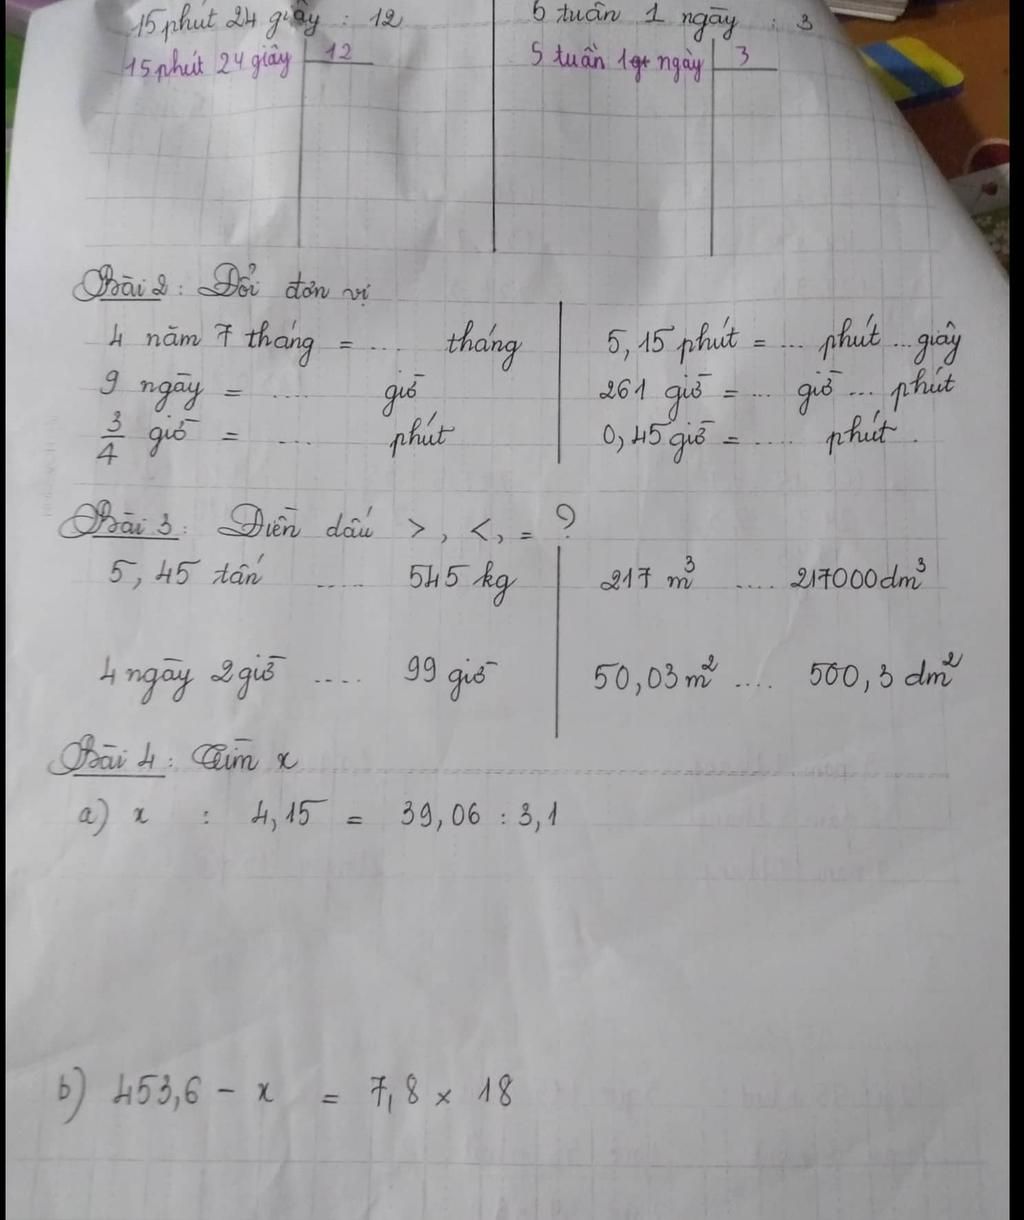 15 phút 24 giây : 12
5 tuần 1 ngày : 3
15 phút 24 giây 12
5 tuần 1 ngày 3
Bài 2: Đổi đơn vị
4 năm 7 tháng = .... tháng
5,15 phút = ... phút ... giây
9 ngày = ..... giờ
261 giờ = ... giờ ... phút
3/4 giờ = .... phút
0,45 giờ = ..... phút.
Bài 3: Điền dấu >, <, = ?
5,45 tấn .... 545 kg
217 m³ .... 217000dm³
4 ngày 2 giờ .... 99 giờ
50,03m² .... 500,3 dm²
Bài 4: Tìm x
a) x : 4,15 = 39,06 : 3,1
b) 453,6 - x = 7,8 × 18